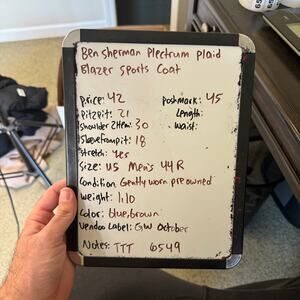 Ben Sherman Plectrum Plaid
Blazer Sports Coat
Price: 42 Poshmark: 45
pitzpit: 21 Length:
Shoulder 2 Hem: 30 Waist:
Sleevefrompit: 18
Stretch: Yes
Size: US Men's 44R
Condition Gently worn preowned
Weight: 1.10
Color: blue, brown
Vendoo Label: GW October
Notes: TTT 6549